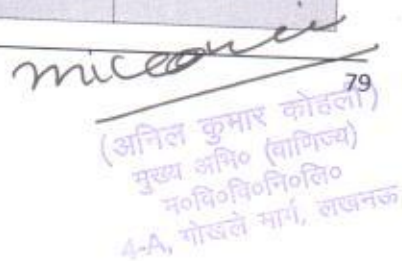 79
(अनिल कुमार कोहली)
मुख्य अभि० (वाणिज्य)
म०वि०वि०नि०लि०
4-A, गोखले मार्ग, लखनऊ